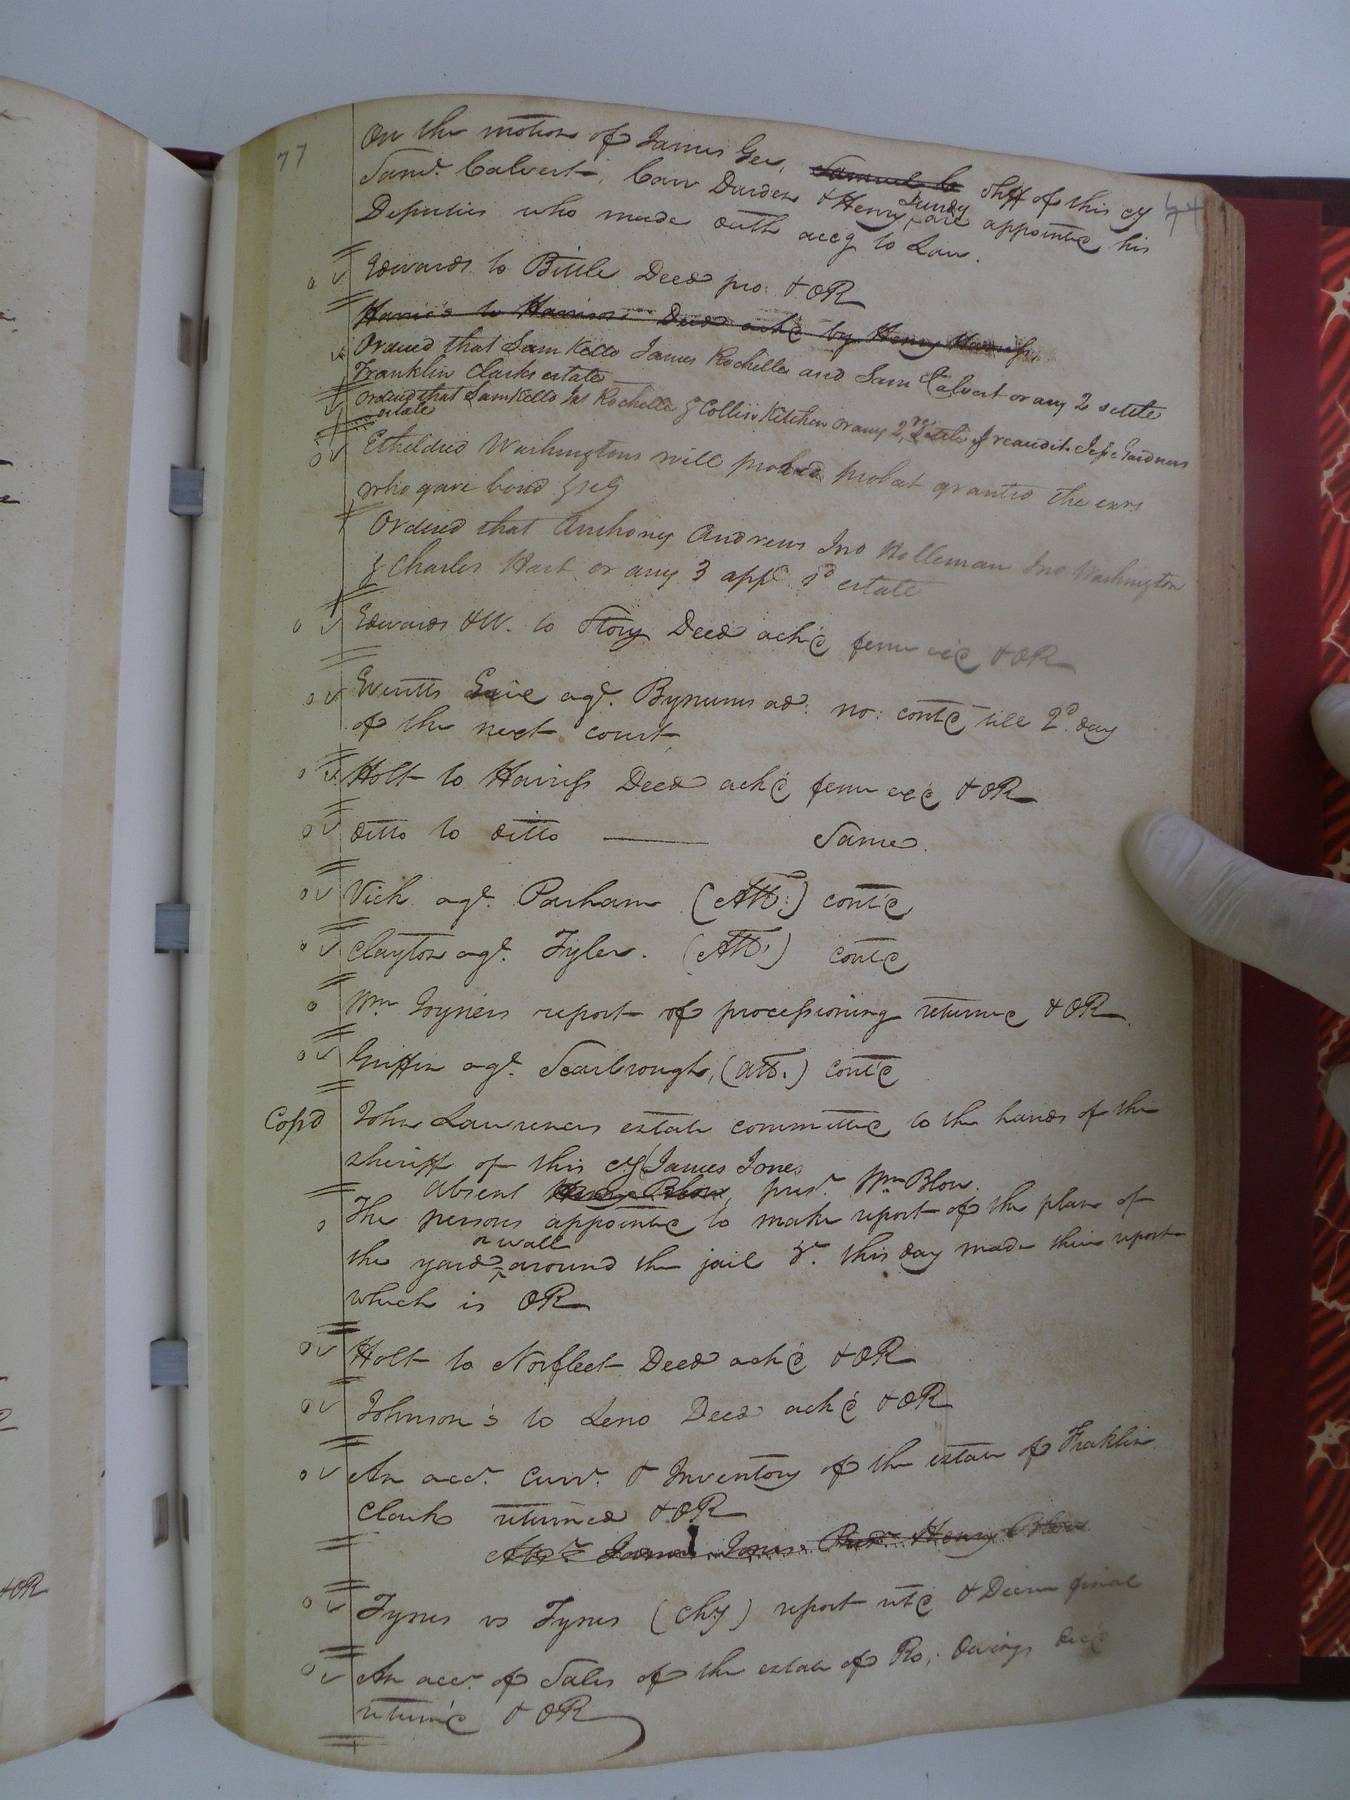 77
On the motion of James Gee, Samuel C Shff of this cy
Saml. Calvert, Carr Darden & Henry Gurley are appointd his
Deputies who made oath accg to Law.
Edwards to Bittle Deed pro: & OR
Harris to Harrison Deed ack'd by Henry Harriss
Ordered that Sam Kello James Rochelle and Sam Calvert or any 2 settle
Franklin Clarks estate
Ordered that Sam Kello Jas Rochelle & Collin Kitchen or any 2, settle & reaudit Jesse Gardners
estate
Etheldred Washingtons will proved probat granted the exrs
who gave bond &c
Ordered that Anthony Andrews Jno Holleman Jno Washington
& Charles Hart or any 3 appr. sd estate
Edwards & W. to Story Deed ack'd feme & OR
agt. Bynums ad: no: contd till 2d. day
of the next court
Holt to Harriss Deed ack'd feme & OR
ditto to ditto — Same.
Vick agt. Parham (Att:) cont'd
Clayton agt. Tyler. (Att:) contd
Wm Joyners report of processioning returnd & OR
Griffin agt. Scarbrough, (Att.) cont'd
Cop'd
John Lawrences estate committed to the hands of the
sheriff of this cy James Jones
Absent Henry Blow, prest. Wm Blow.
The persons appointed to make report of the plan of
or wall
the yard ^ around the jail &c. this day made their report
which is OR
Holt to Norfleet Deed ack'd & OR
Johnson's to Leno Deed ack'd & OR
An acct. Currt. & Inventory of the estate of Fraklin
Clarke returned & OR
Abst. James Jones Prest. Henry Blow
Tynes vs Tynes (Chy) report retd & Decree final
An acct. of Sales of the estate of Ro: Owings decd
return'd & OR